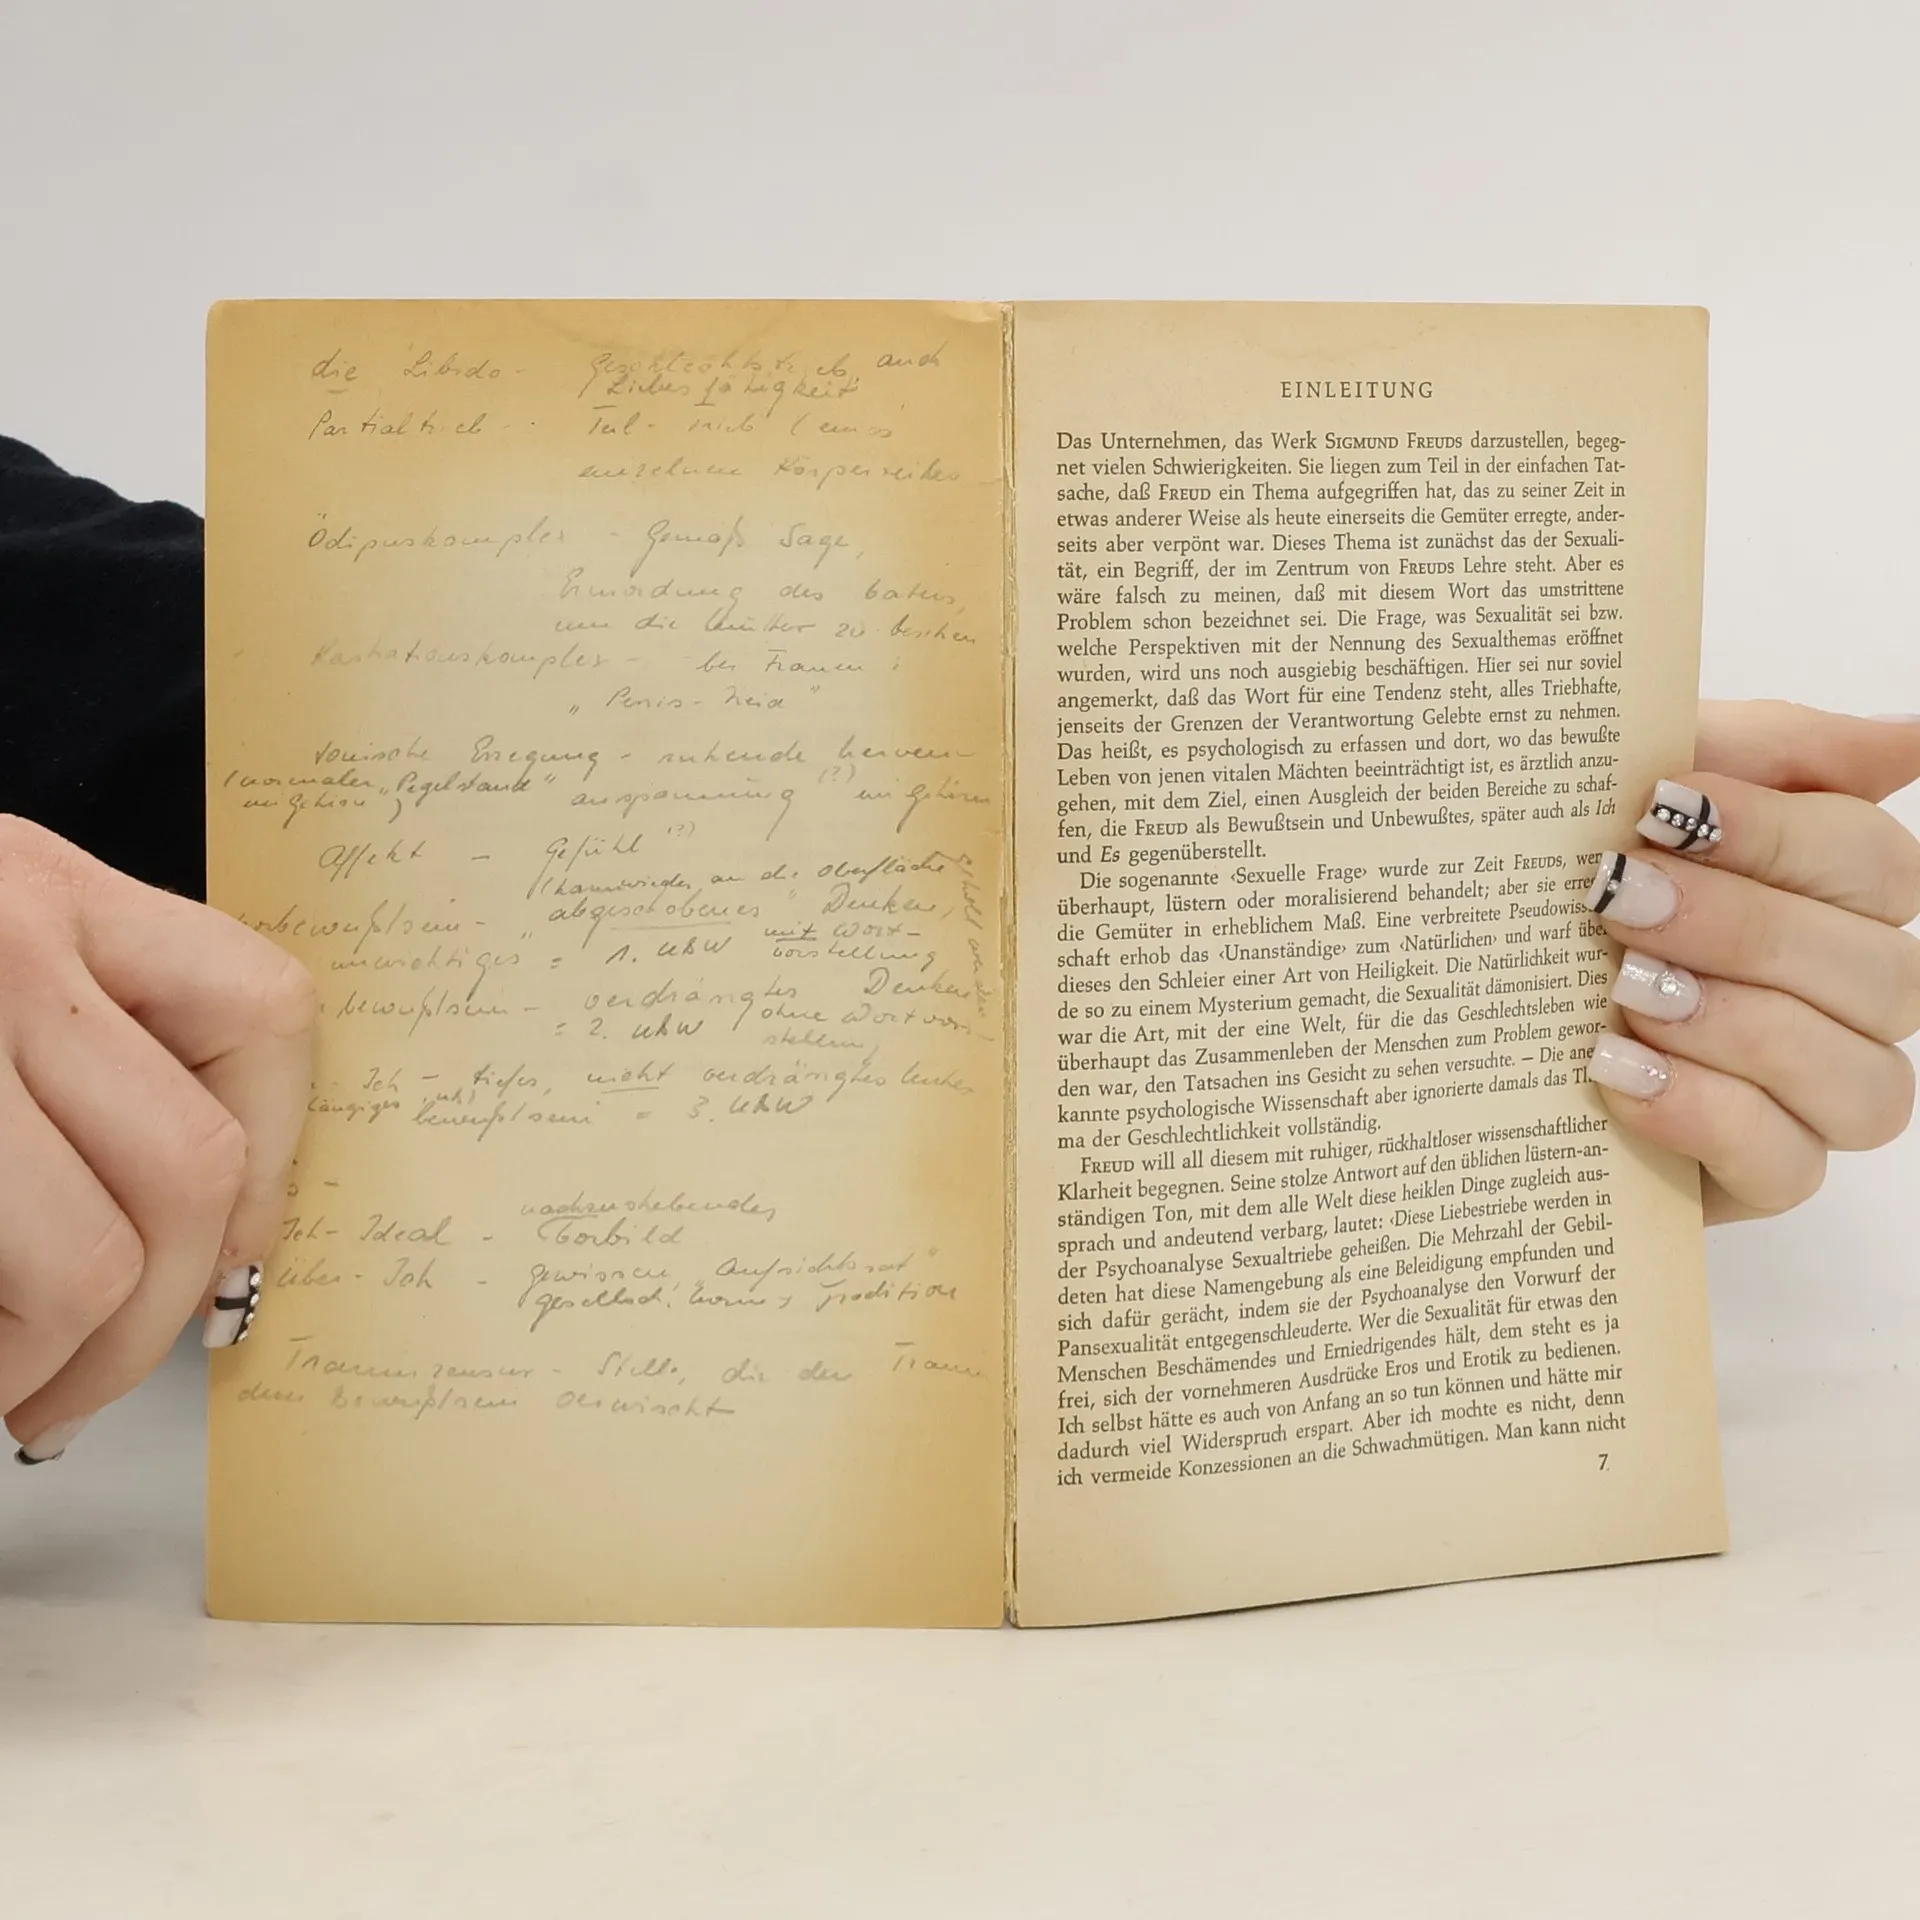 die Libido - Geschlechtstrieb, auch
Liebesfähigkeit
Partialtrieb - Teil-Trieb (eines
einzelnen Körperteiles
Ödipuskomplex - Gemäß Sage,
Ermordung des Vaters,
um die Mutter zu besitzen
Kastrationskomplex - bei Frauen:
„Penis-Neid"
tonische Erregung - ruhende Nerven-
(normaler „Pegelstand" anspannung (?) im Gehirn
im Gehirn)
Affekt - Gefühl (?)
(kann wieder an die Oberfläche
geholt werden
vorbewußtsein - „abgeschobenes" Denken,
unwichtiges = 1. UBW mit Wort-
vorstellung
bewußtsein - verdrängtes Denken
= 2. UBW ohne Wortvor-
stellung
Ich - tiefes, nicht verdrängtes Unter
bewußtsein = 3. UBW
nachzustrebendes
Ich-Ideal - Vorbild
Über-Ich - Gewissen, „Aufsichtsrat"
gesellsch. Norm, Tradition
Traumzensur - Stelle, die den Traum
dem Bewußtsein verwischt
EINLEITUNG
Das Unternehmen, das Werk SIGMUND FREUDS darzustellen, begeg-
net vielen Schwierigkeiten. Sie liegen zum Teil in der einfachen Tat-
sache, daß FREUD ein Thema aufgegriffen hat, das zu seiner Zeit in
etwas anderer Weise als heute einerseits die Gemüter erregte, ander-
seits aber verpönt war. Dieses Thema ist zunächst das der Sexuali-
tät, ein Begriff, der im Zentrum von FREUDS Lehre steht. Aber es
wäre falsch zu meinen, daß mit diesem Wort das umstrittene
Problem schon bezeichnet sei. Die Frage, was Sexualität sei bzw.
welche Perspektiven mit der Nennung des Sexualthemas eröffnet
wurden, wird uns noch ausgiebig beschäftigen. Hier sei nur soviel
angemerkt, daß das Wort für eine Tendenz steht, alles Triebhafte,
jenseits der Grenzen der Verantwortung Gelebte ernst zu nehmen.
Das heißt, es psychologisch zu erfassen und dort, wo das bewußte
Leben von jenen vitalen Mächten beeinträchtigt ist, es ärztlich anzu-
gehen, mit dem Ziel, einen Ausgleich der beiden Bereiche zu schaf-
fen, die FREUD als Bewußtsein und Unbewußtes, später auch als Ich
und Es gegenüberstellt.
Die sogenannte ‹Sexuelle Frage› wurde zur Zeit FREUDS, wen
überhaupt, lüstern oder moralisierend behandelt; aber sie erreg
die Gemüter in erheblichem Maß. Eine verbreitete Pseudowiss
schaft erhob das ‹Unanständige› zum ‹Natürlichen› und warf über
dieses den Schleier einer Art von Heiligkeit. Die Natürlichkeit wur-
de so zu einem Mysterium gemacht, die Sexualität dämonisiert. Dies
war die Art, mit der eine Welt, für die das Geschlechtsleben wie
überhaupt das Zusammenleben der Menschen zum Problem gewor-
den war, den Tatsachen ins Gesicht zu sehen versuchte. – Die aner
kannte psychologische Wissenschaft aber ignorierte damals das Th
ma der Geschlechtlichkeit vollständig.
FREUD will all diesem mit ruhiger, rückhaltloser wissenschaftlicher
Klarheit begegnen. Seine stolze Antwort auf den üblichen lüstern-an-
ständigen Ton, mit dem alle Welt diese heiklen Dinge zugleich aus-
sprach und andeutend verbarg, lautet: ‹Diese Liebestriebe werden in
der Psychoanalyse Sexualtriebe geheißen. Die Mehrzahl der Gebil-
deten hat diese Namengebung als eine Beleidigung empfunden und
sich dafür gerächt, indem sie der Psychoanalyse den Vorwurf der
Pansexualität entgegenschleuderte. Wer die Sexualität für etwas den
Menschen Beschämendes und Erniedrigendes hält, dem steht es ja
frei, sich der vornehmeren Ausdrücke Eros und Erotik zu bedienen.
Ich selbst hätte es auch von Anfang an so tun können und hätte mir
dadurch viel Widerspruch erspart. Aber ich mochte es nicht, denn
ich vermeide Konzessionen an die Schwachmütigen. Man kann nicht
7